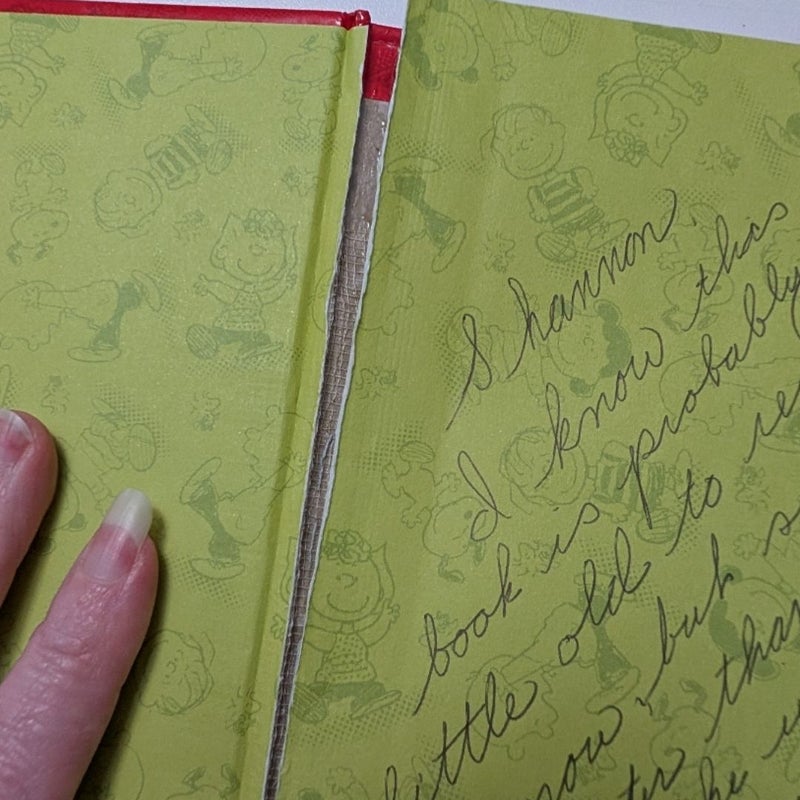 Shannon
I know this
book is probably
little old to re
now, but s
ter than
he